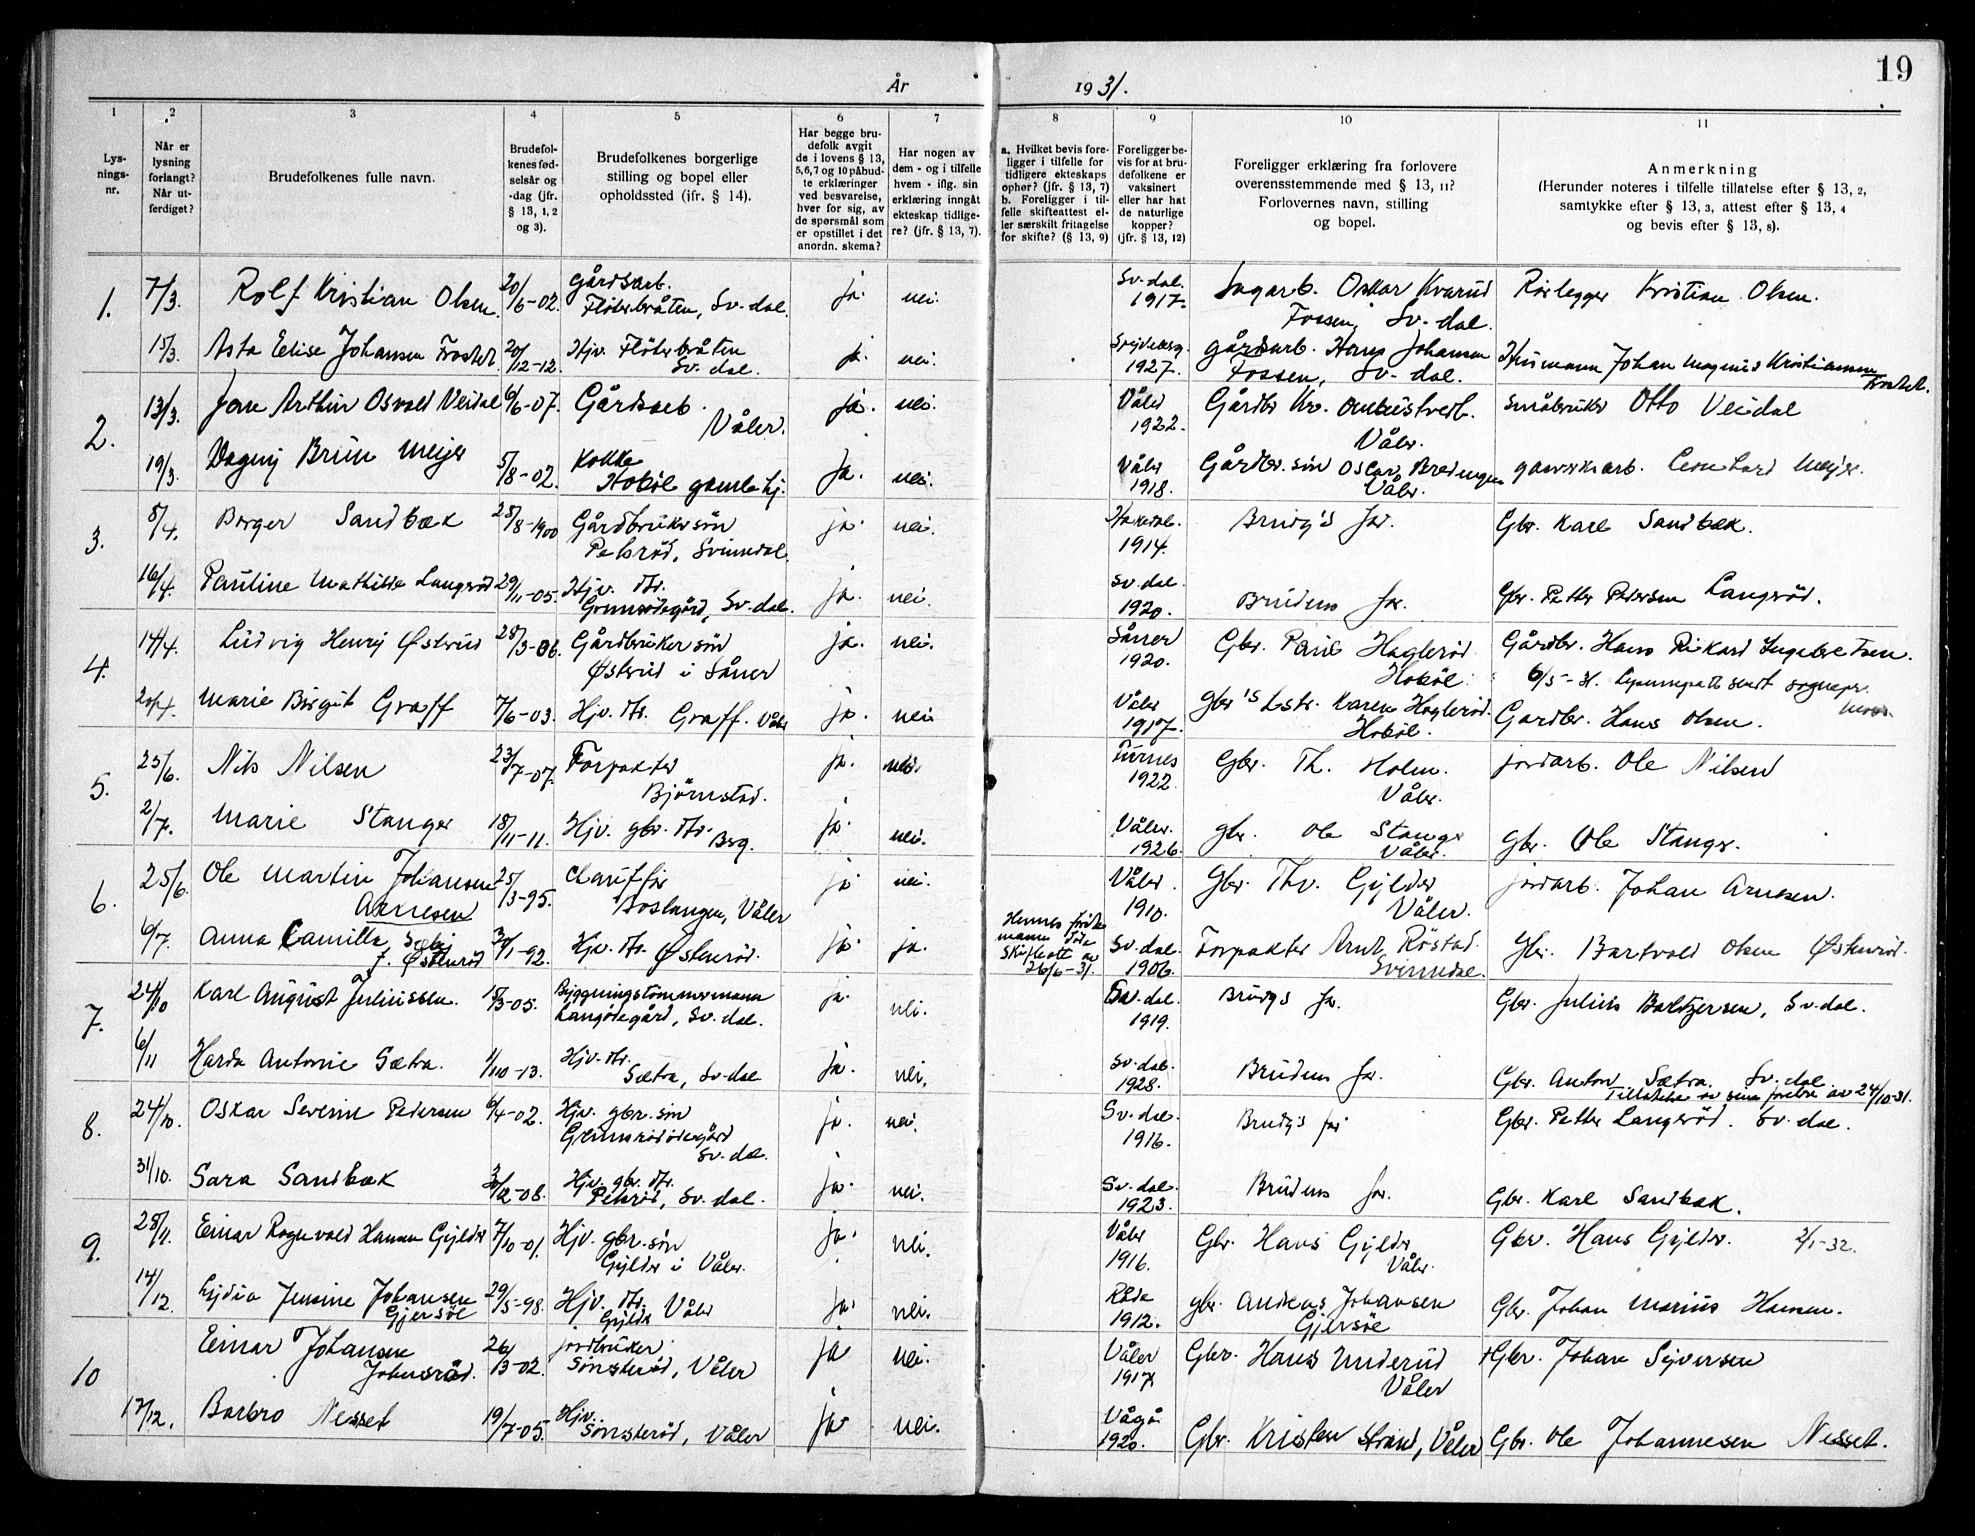 19
År 1931.
1 2 3 4 5 6 7 8 9 10 11
Lysnings-nr.
Når er lysning forlangt? Når utferdiget?
Brudefolkenes fulle navn.
Brudefolkenes fødselsår og -dag (jfr. § 13, 1, 2 og 3).
Brudefolkenes borgerlige stilling og bopel eller opholdssted (jfr. § 14).
Har begge brudefolk avgit de i lovens § 13, 5, 6, 7 og 10 påbudte erklæringer ved besvarelse, hver for sig, av de spørsmål som er opstillet i det anordn. skema?
Har nogen av dem - og i tilfelle hvem - iflg. sin erklæring inngått ekteskap tidligere? (jfr. § 13, 7).
a. Hvilket bevis foreligger i tilfelle for tidligere ekteskaps ophør? (jfr. § 13, 7) b. Foreligger i tilfelle skifteattest eller særskilt fritagelse for skifte? (§ 13, 9)
Foreligger bevis for at brudefolkene er vaksinert eller har hat de naturlige kopper? (jfr. § 13, 12)
Foreligger erklæring fra forlovere overensstemmende med § 13, 11? Forlovernes navn, stilling og bopel.
Anmerkning (Herunder noteres i tilfelle tillatelse efter § 13, 2, samtykke efter § 13, 3, attest efter § 13, 4 og bevis efter § 13, 8).
1. 7/3. Rolf Kristian Olsen. 20/6-02. Gårdsarb. Fløterbråten, Sv-dal. ja. nei. Sv-dal. 1917. Sagarb. Oskar Kvarud Fossen, Sv-dal. Rørlegger Kristian Olsen.
15/3. Asta Elise Johansen 20/12-12. Hjv. Fløterbråten Sv. dal. ja. nei. 1927. gårdsarb. Hans Johansen Fossen, Sv-dal. Johan Magnus Kristiansen
2. 13/3. Jon Arthur Osvald Veidal 6/6-07. Gårdsarb. Våler. ja. nei. Våler 1922. Gårdbr. Kr. Våler. småbruker Otto Veidal
19/3. Dagny Brun Meyer 5/8-02. Kokke Hobøl gamlehj. ja. nei. Våler 1918. Gårdbr. søn Oscar Våler. Leonhard Meyer.
3. 8/4. Borger Sandbæk 25/8-1900 Gårdbrukersøn Pelsrød, Svinndal. ja. nei. 1914. Brudg's far. Gbr. Karl Sandbæk.
16/4. Pauline Mathilde Langsrød 29/11-05. Hjv. dtr. Sv-dal. ja. nei. Sv. dal. 1920. Brudens far. Gbr. Petter Pedersen Langsrød.
4. 14/4. Ludvig Henry Østerud 28/3-06. Gårdbruker søn Østerud i Såner ja. nei. Såner 1920. Gbr. Paul Haglerød Hobøl. Gårdbr. Hans Rikard
6/5-31. sendt sognepr. Moss.
20/4. Marie Birgit Graff 7/6-03. Hjv. dtr. Graff. Våler ja. nei Våler 1917. gbr's Karen Haglerød. Hobøl. Gardbr. Hans Olsen.
5. 25/6. Nils Nilsen 23/7-07. Forpakter Bjørnstad. ja. nei. 1922. Gbr. Th. Holm. Våler. jordarb. Ole Nilsen
2/7. Marie Stanger 18/11-11. Hjv. gbr. dtr. Berg. ja. nei. Våler. 1926. gbr. Ole Stanger Våler. gbr. Ole Stanger.
6. 25/6. Ole Martin Johansen Arnesen 25/3-95. Chauffør Våler ja nei. Våler. 1910. Gbr. Thv. Gylder Våler. jordarb. Johan Arnesen.
6/7. Anna Camilla f. Østenrød 1-92. Hjv. dtr. Østenrød. ja. ja. Hennes første mann døde Skifteatt av 26/6-31. Sv-dal. 1906. Forpakter Røstad. Svinndal. Gbr. Bartvald Olsen Østenrød.
7. 24/10 Karl August Juliussen. 15/3-05. Bygningstømmermann Sv. dal. ja. nei. Sv-dal. 1919. Brudgs far. Gbr. Julius Baltzersen, Sv-dal.
6/11 Antonie Sætra. 1/10-13. Hjv. dtr. Sætra, Sv-dal ja. nei. Sv-dal. 1928. Brudens far. Gbr. Anton Sætra. Sv. dal. Tillatelse av sine foreldre av 24/10-31.
8. 24/10. Oskar Severin Pedersen 6/4-02. Hjv. gbr. søn Sv-dal. ja. nei. Sv-dal. 1916. Brudg's far Gbr. Petter Langsrød. Sv-dal.
31/10. Sara Sandbæk 12-08. Hjv. gbr. dtr. Pelsrød, Sv. dal. ja. nei. Sv-dal. 1923. Brudens far. Gbr. Karl Sandbæk.
9. 28/11. Einar Ragnvald Hansen Gylder 7/10-01. Hjv. gbr. søn Gylder i Våler. ja. nei. Våler 1916. Gbr. Hans Gylder Våler. Gbr. Hans Gylder. 2/1-32.
14/12. Lydia Jensine Johansen Gjersøe 29/5-98. Hjv. dtr. Gylder Våler ja. nei. Råde 1912. gbr. Andreas Johansen Gjersøe Gbr. Johan Marius Hansen.
10 Einar Johansen Johnsrød. 26/3-02. jordbruker Sønsterød, Våler ja nei. Våler 1917. Gbr. Hans Underud Våler Gbr. Johan Syversen
17/12. Barbro Nesset 19/7-05. Hjv. Sønsterød, Våler ja nei. Vågå 1920. Gbr. Kristen Strand, Våler Gbr. Ole Johannesen Nesset.